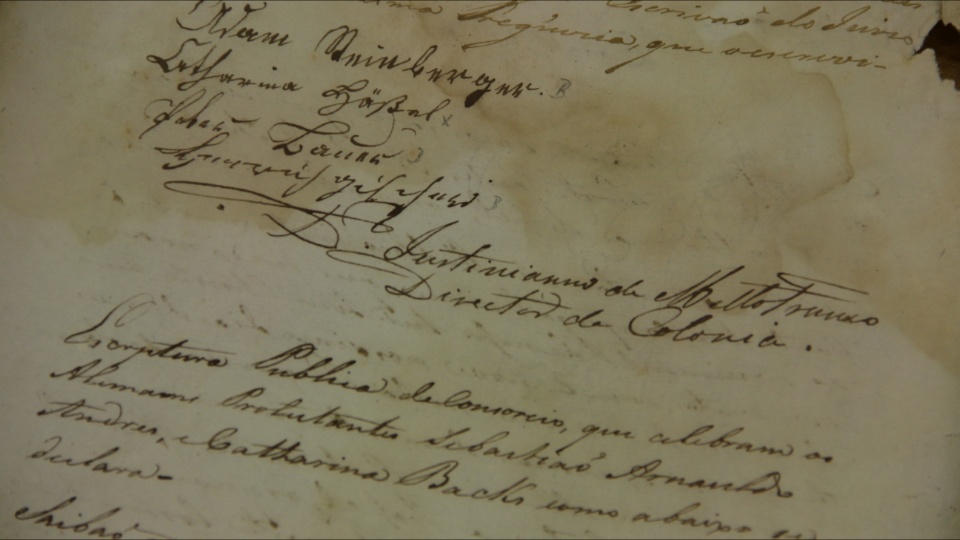 Escrivaõ do Juiso
Freguesia, que o escrevi-
Adam Steinberger.
Catharina Häßel
Peter Bauer
D. Justinianno de Mello Franco
Director da Colonia.
Escriptura Publica de Consorcio, que celebram os
Alemaens Protestantes Sebastiaõ Arnauldo
Andres, e Catharina Backs como abaixo se
declara-
Saibaõ